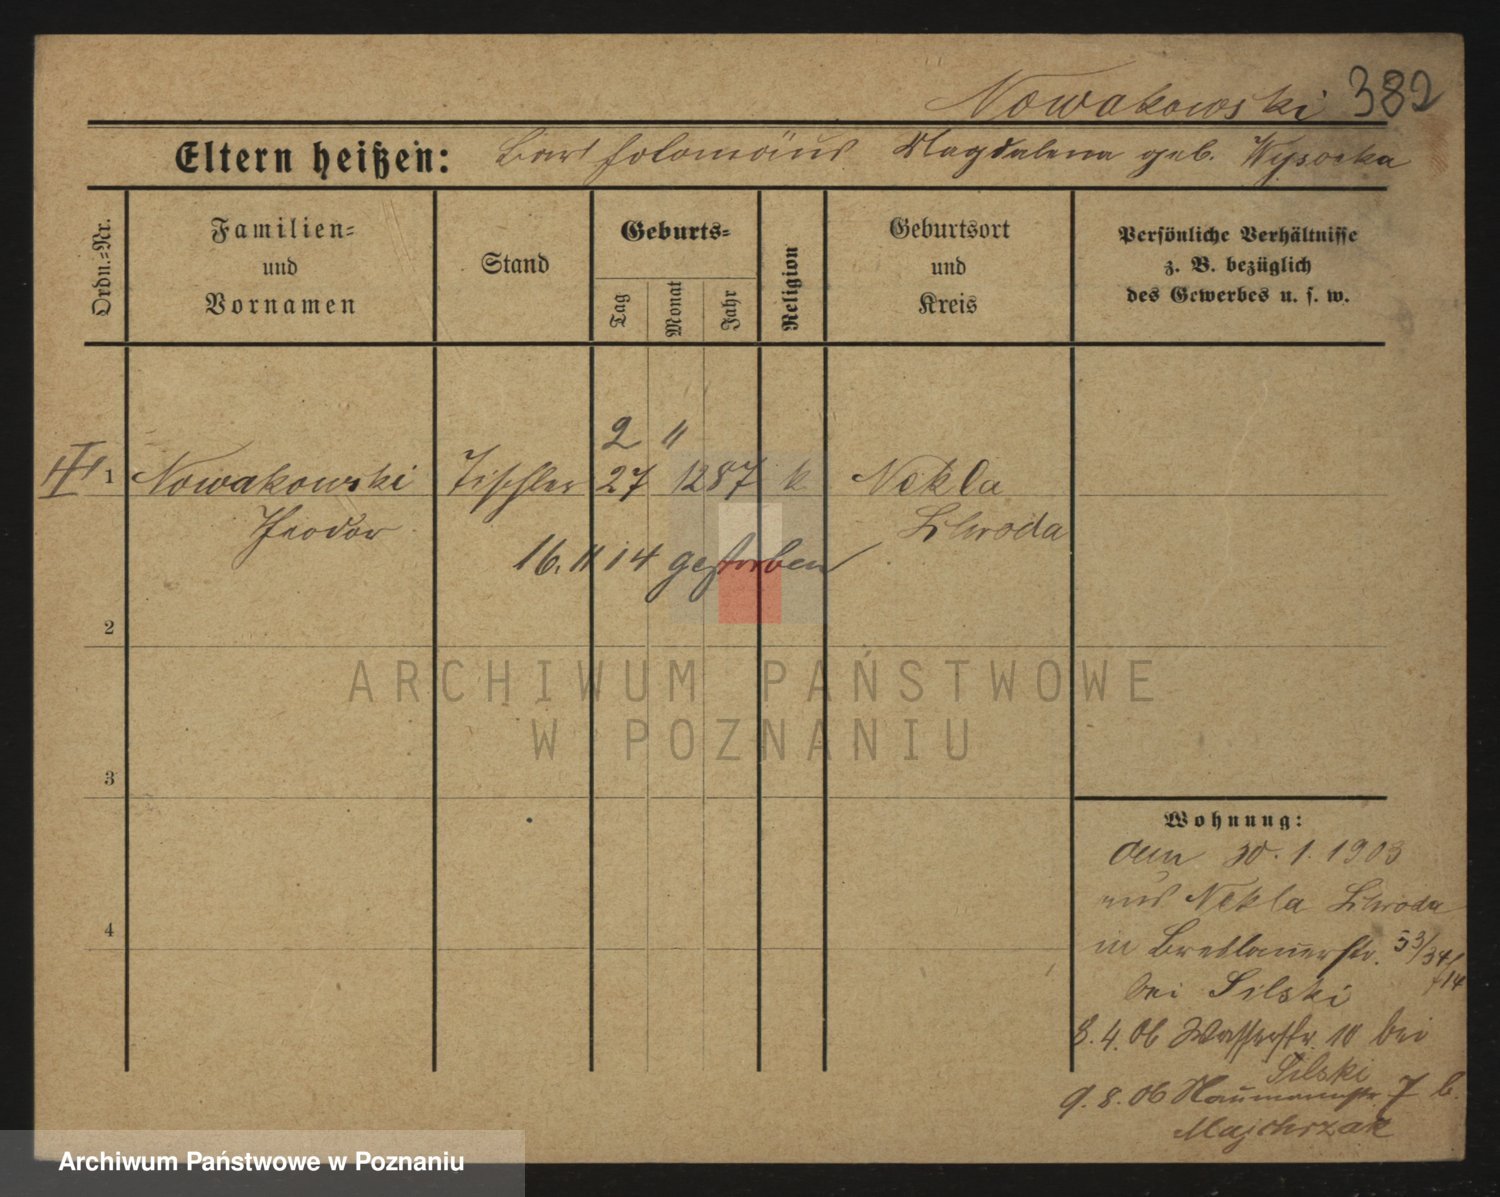 Nowakowski 382
Eltern heißen: Bartholomäus Magdalena geb. Wysocka
Ordn.-Nr.
Familien-
und
Vornamen
Stand
Geburts-
Tag
Monat
Jahr
Religion
Geburtsort
und
Kreis
Persönliche Verhältnisse
z. B. bezüglich
des Gewerbes u. s. w.
2 "
1 Nowakowski Tischler 27 12 87 k Nekla
Theodor Schroda
16. 11 14 gestorben
2
3
4
Wohnung:
den 30. 1. 1903
aus Nekla Schroda
in Breslauerstr. 33/34
/14
bei Silski
8. 4. 06 Wasserstr. 10 bei
Silski
9. 8. 06 Naumannstr. 7 b.
Majchrzak
ARCHIWUM PAŃSTWOWE
W POZNANIU
Archiwum Państwowe w Poznaniu